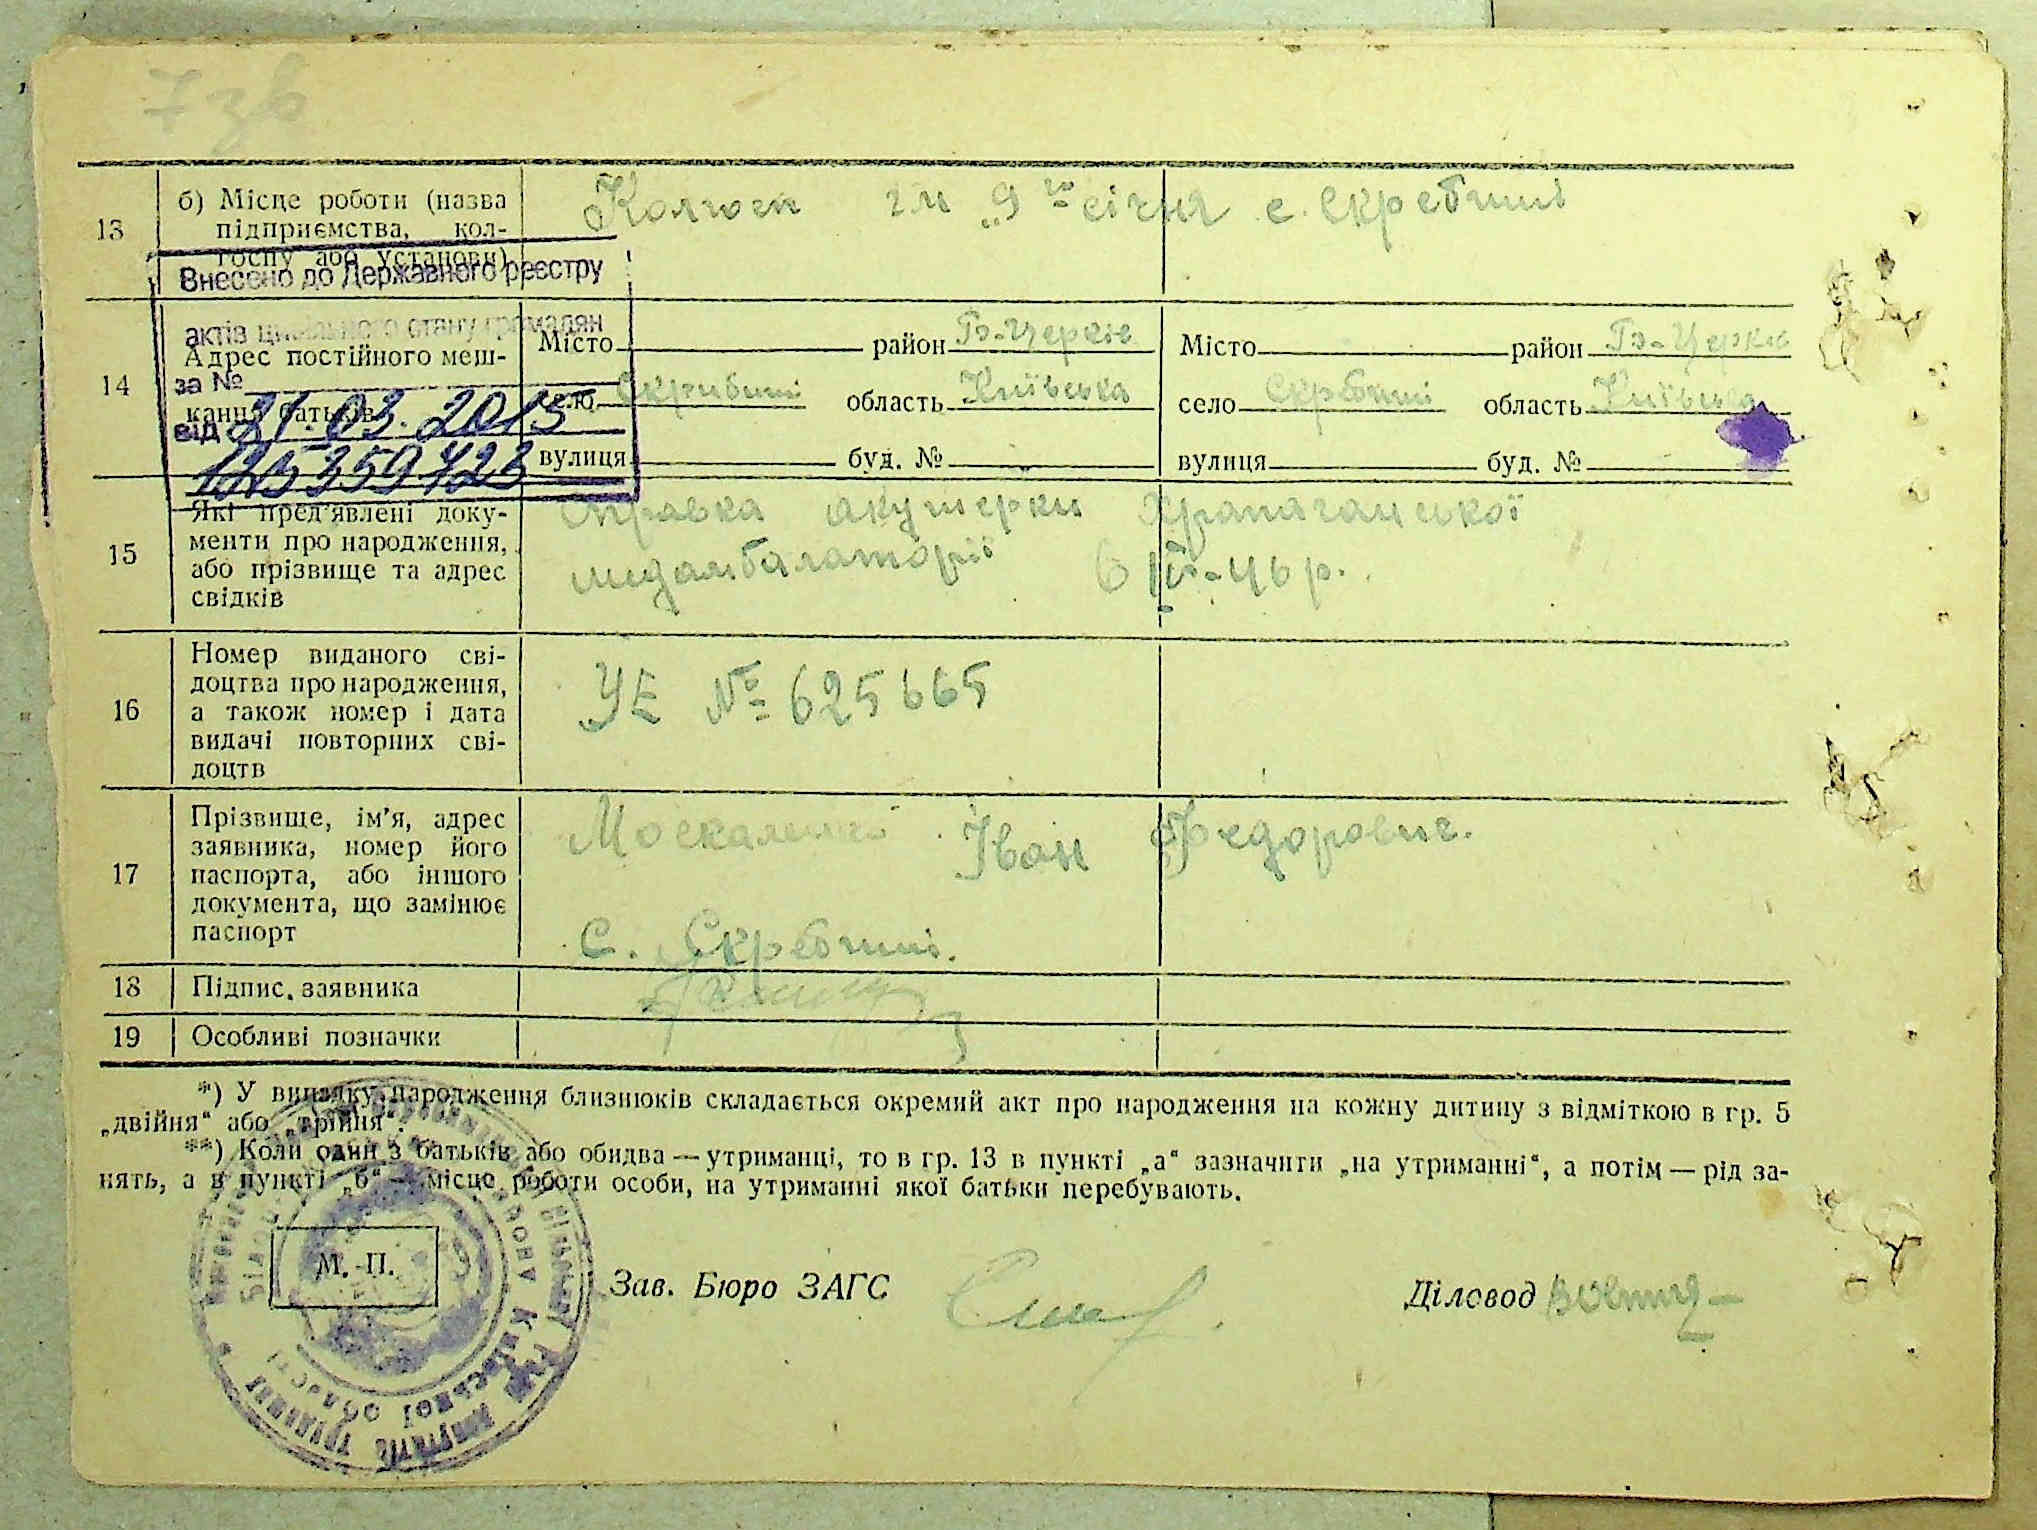 7 зв
13
б) Місце роботи (назва
підприємства, кол-
госпу або установи)
Колгосп ім „9го січня с. Скребиші
Внесено до Державного реєстру
актів цивільного стану громадян
за №
від 21.03.2015
125359723
14
Адрес постійного меш-
кання батьків
Місто район Б-Церкв
село Скребиші область Київська
вулиця буд. №
Місто район Б-Церкв
село Скребиші область Київська
вулиця буд. №
15
Які пред'явлені доку-
менти про народження,
або прізвище та адрес
свідків
Справка акушерки
медамбалаторії 6 IV-46 р.
16
Номер виданого сві-
доцтва про народження,
а також номер і дата
видачі повторних сві-
доцтв
УЕ № 625665
17
Прізвище, ім'я, адрес
заявника, номер його
паспорта, або іншого
документа, що замінює
паспорт
Москаленко Іван Федорович.
с. Скребиші.
18
Підпис заявника
19
Особливі позначки
*) У випадку народження близнюків складається окремий акт про народження на кожну дитину з відміткою в гр. 5
„двійня“ або „трійня“.
**) Коли один з батьків або обидва — утриманці, то в гр. 13 в пункті „а“ зазначити „на утриманні“, а потім — рід за-
нять, а в пункті „б“ — місце роботи особи, на утриманні якої батьки перебувають.
М. П.
Київської області
депутатів трудящих
Зав. Бюро ЗАГС
Діловод